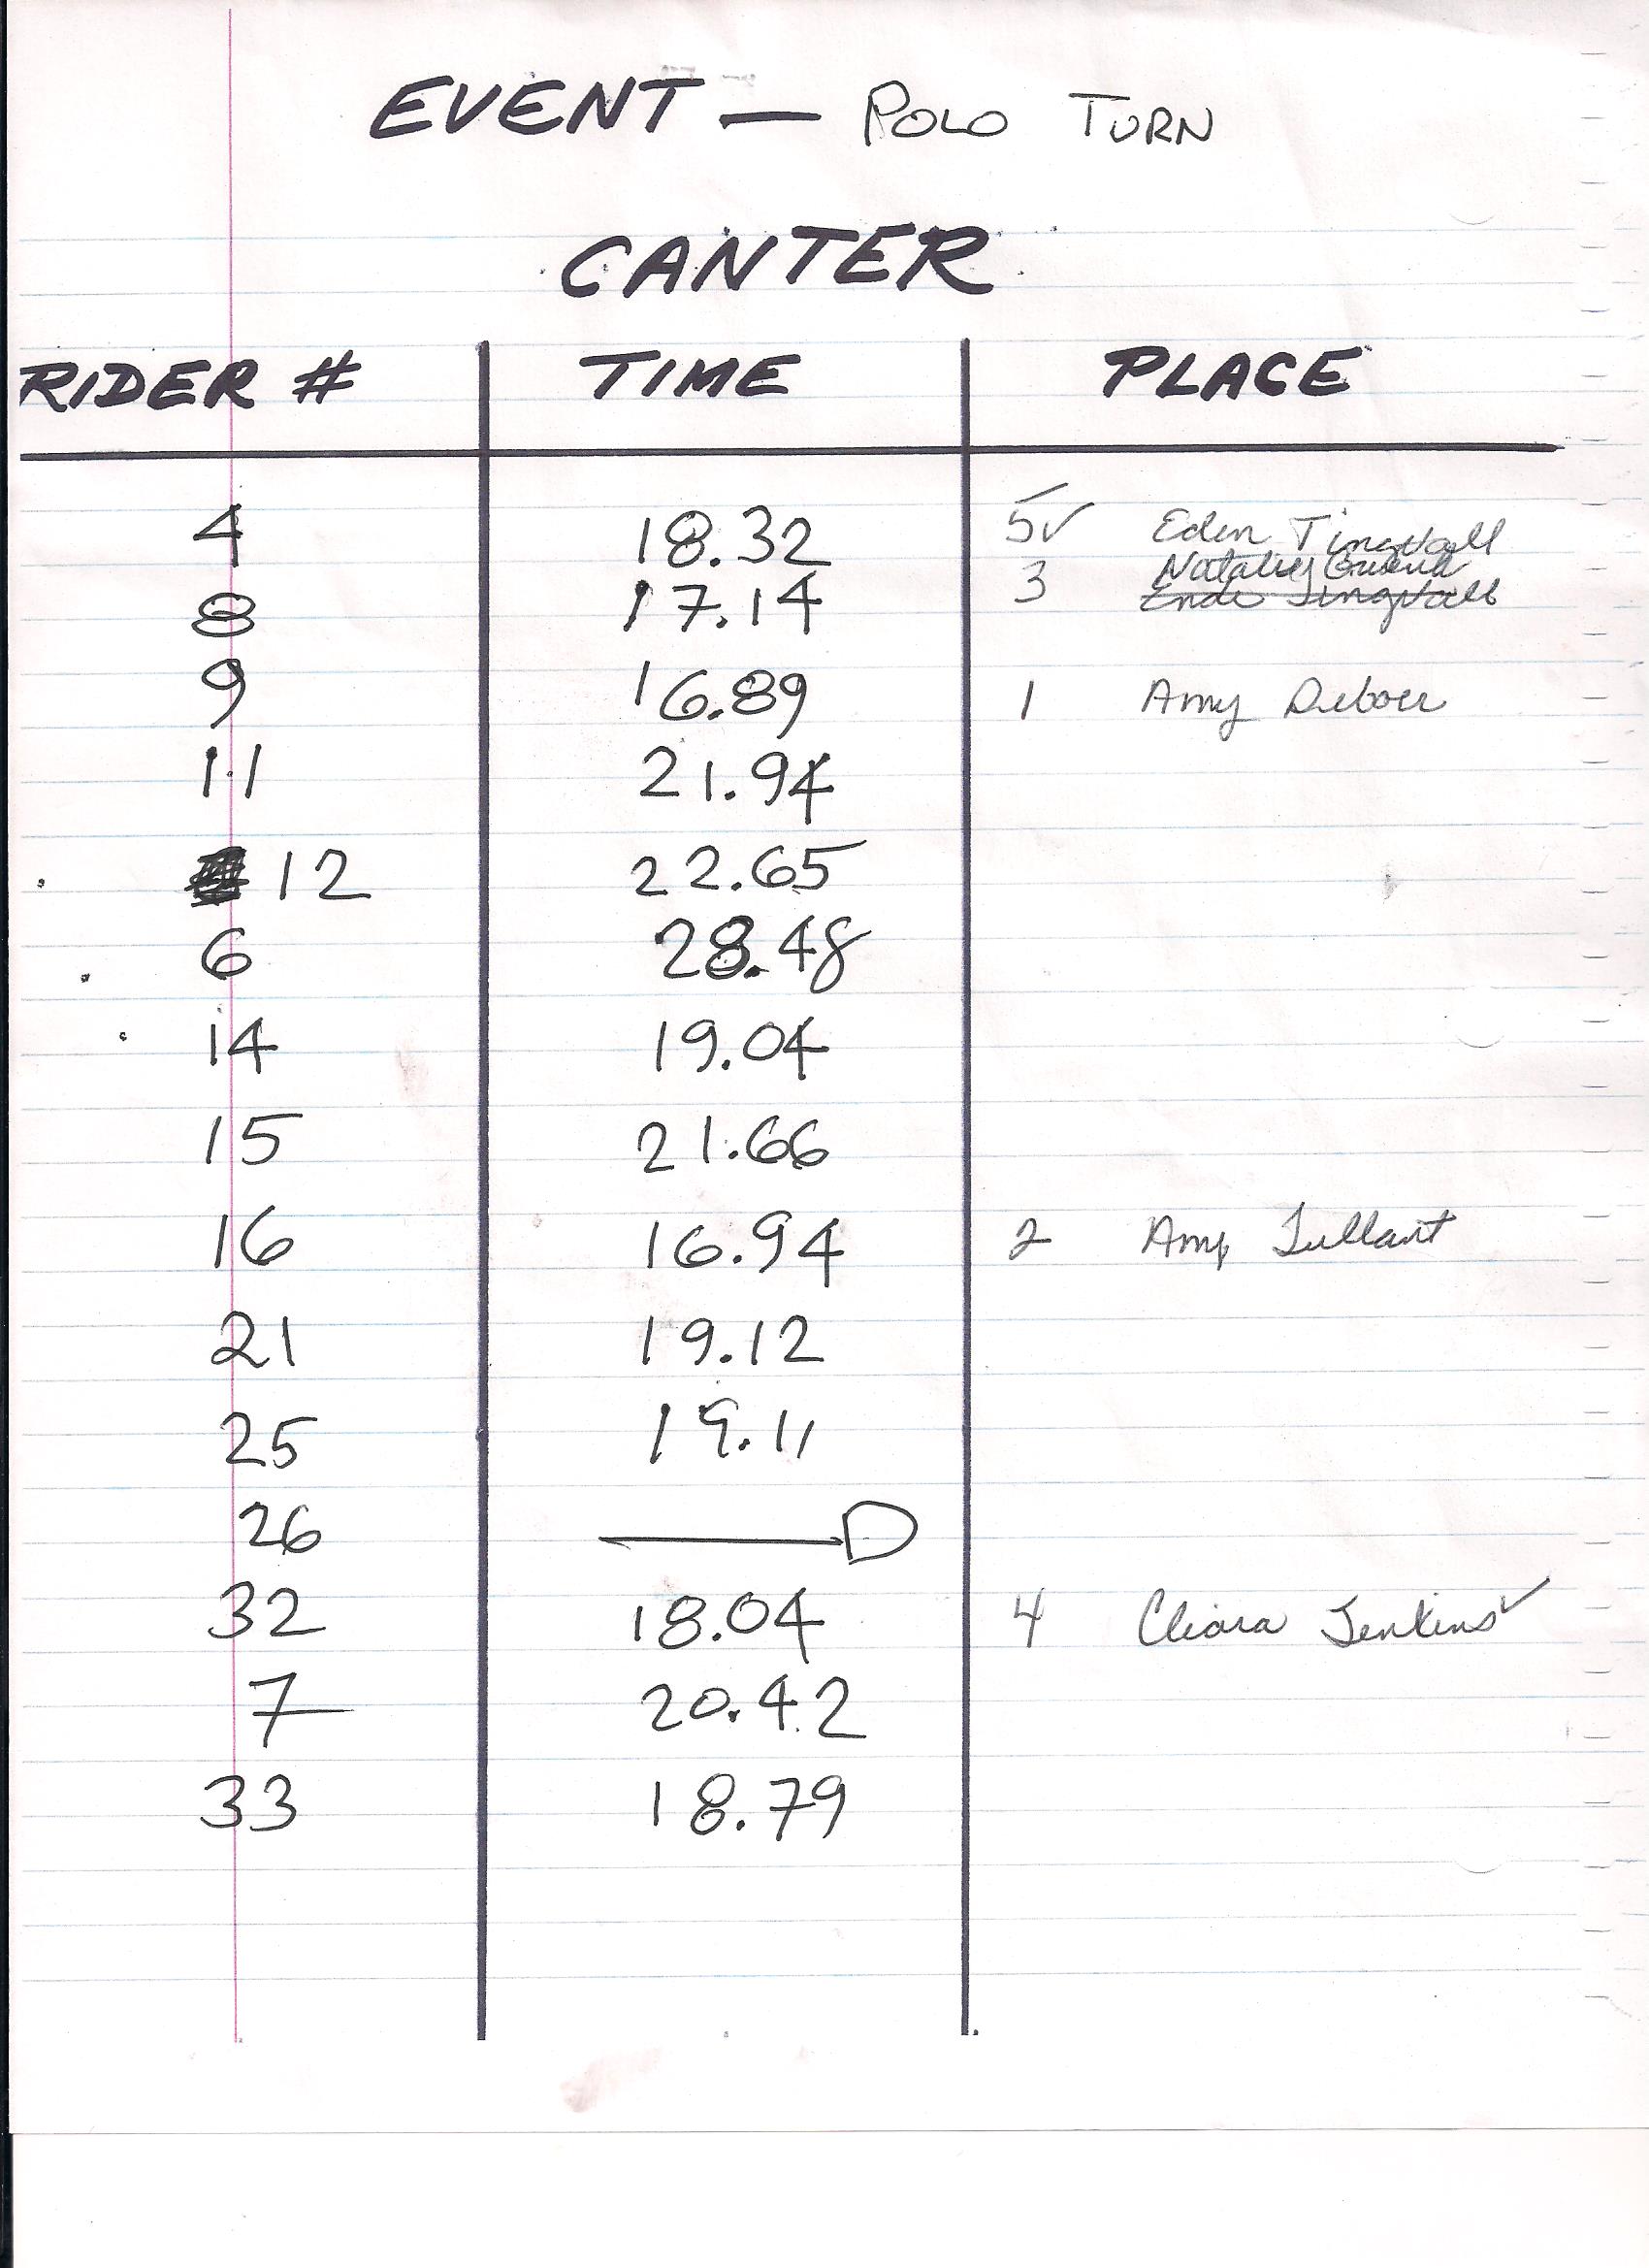 EVENT — POLO TURN
CANTER
RIDER # TIME PLACE
4 18.32 5✓ Eden Tingvall
8 17.14 3 Natalie
9 16.89 1 Amy Deboer
11 21.94
12 22.65
6 28.48
14 19.04
15 21.66
16 16.94 2 Amy
21 19.12
25 19.11
26 —D
32 18.04 4 Chiara Jenkins ✓
7 20.42
33 18.79